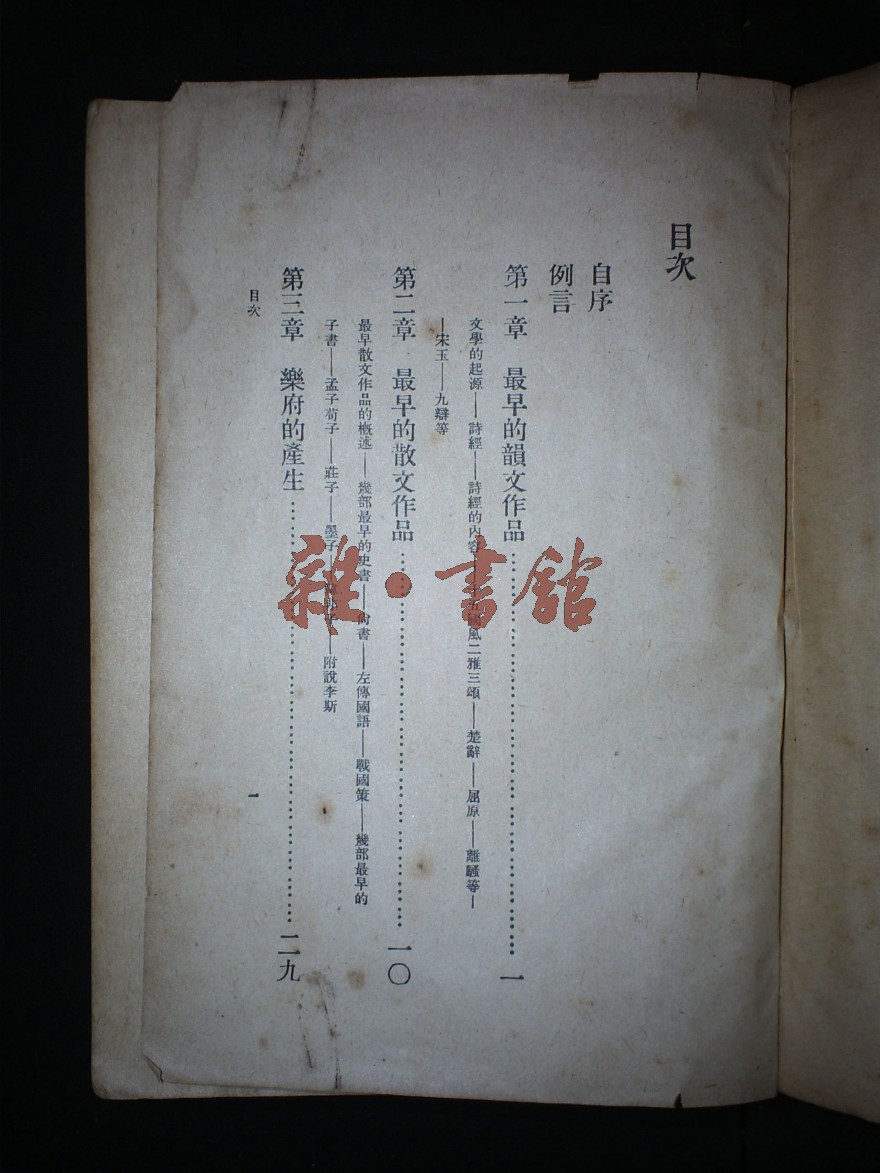 目次
自序
例言
第一章　最早的韻文作品……一
文學的起源——詩經——詩經的內容 五國風二雅三頌——楚辭——屈原——離騷等—
—宋玉——九辯等
第二章　最早的散文作品……一〇
最早散文作品的槪述——幾部最早的史書——尙書——左傳國語——戰國策——幾部最早的
子書——孟子荀子——莊子——墨子 附說李斯
第三章　樂府的產生……二九
目次
一
雜·書館